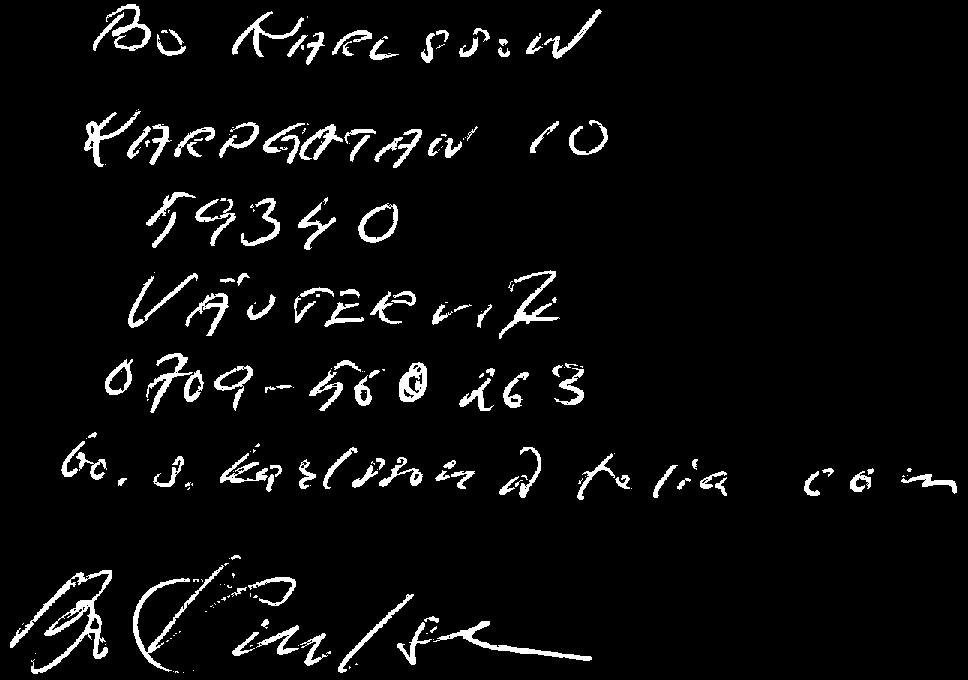 BO KARLSSON
KARPGATAN 10
59340
VÄSTERVIK
0709-560 263
bo.s.karlsson@telia com
Bo Karlsson